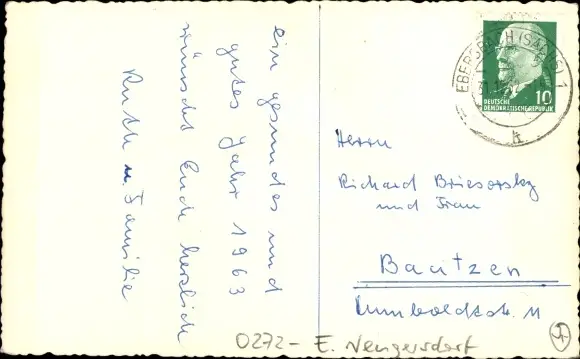 ein gesundes und
gutes Jahr 1963
wünscht Euch herzlich
Ruth u. Familie
EBERSBACH (SACHS) 1
DEUTSCHE
DEMOKRATISCHE REPUBLIK
10
Herrn
Richard
und Frau
Bautzen
Humboldtstr. 11
0272 - E. Neugersdorf